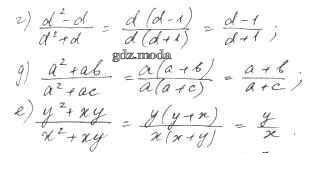 г) (d² - d)/(d² + d) = (d(d-1))/(d(d+1)) = (d-1)/(d+1) ;
gdz.moda
д) (a² + ab)/(a² + ac) = (a(a+b))/(a(a+c)) = (a+b)/(a+c) ;
е) (y² + xy)/(x² + xy) = (y(y+x))/(x(x+y)) = y/x .